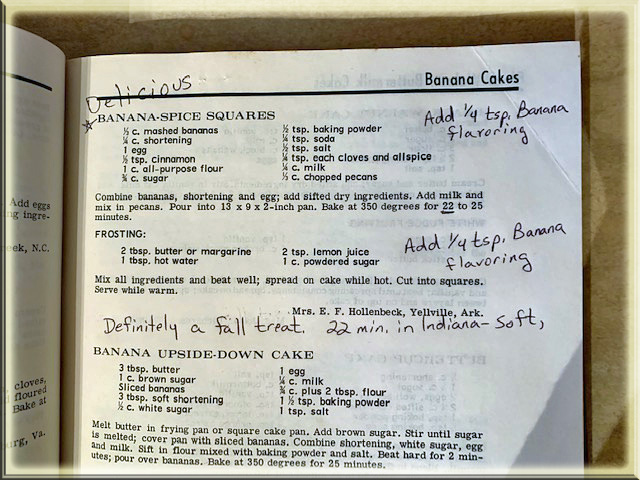 Delicious
Banana Cakes
BANANA-SPICE SQUARES
Add ¼ tsp. Banana
flavoring
½ c. mashed bananas
¼ c. shortening
1 egg
½ tsp. cinnamon
1 c. all-purpose flour
¾ c. sugar
½ tsp. baking powder
¼ tsp. soda
½ tsp. salt
¼ tsp. each cloves and allspice
¼ c. milk
½ c. chopped pecans
Combine bananas, shortening and egg; add sifted dry ingredients. Add milk and
mix in pecans. Pour into 13 x 9 x 2-inch pan. Bake at 350 degrees for 22 to 25
minutes.
FROSTING:
Add ¼ tsp. Banana
flavoring
2 tbsp. butter or margarine
1 tbsp. hot water
2 tsp. lemon juice
1 c. powdered sugar
Mix all ingredients and beat well; spread on cake while hot. Cut into squares.
Serve while warm.
Mrs. E. F. Hollenbeck, Yellville, Ark.
Definitely a fall treat. 22 min. in Indiana-Soft,
BANANA UPSIDE-DOWN CAKE
3 tbsp. butter
1 c. brown sugar
Sliced bananas
3 tbsp. soft shortening
½ c. white sugar
1 egg
¼ c. milk
¾ c. plus 2 tbsp. flour
1 ½ tsp. baking powder
1 tsp. salt
Melt butter in frying pan or square cake pan. Add brown sugar. Stir until sugar
is melted; cover pan with sliced bananas. Combine shortening, white sugar, egg
and milk. Sift in flour mixed with baking powder and salt. Beat hard for 2 min-
utes; pour over bananas. Bake at 350 degrees for 25 minutes.
Add eggs
ng ingre-
ek, N.C.
cloves,
floured
Bake at
rg, Va.